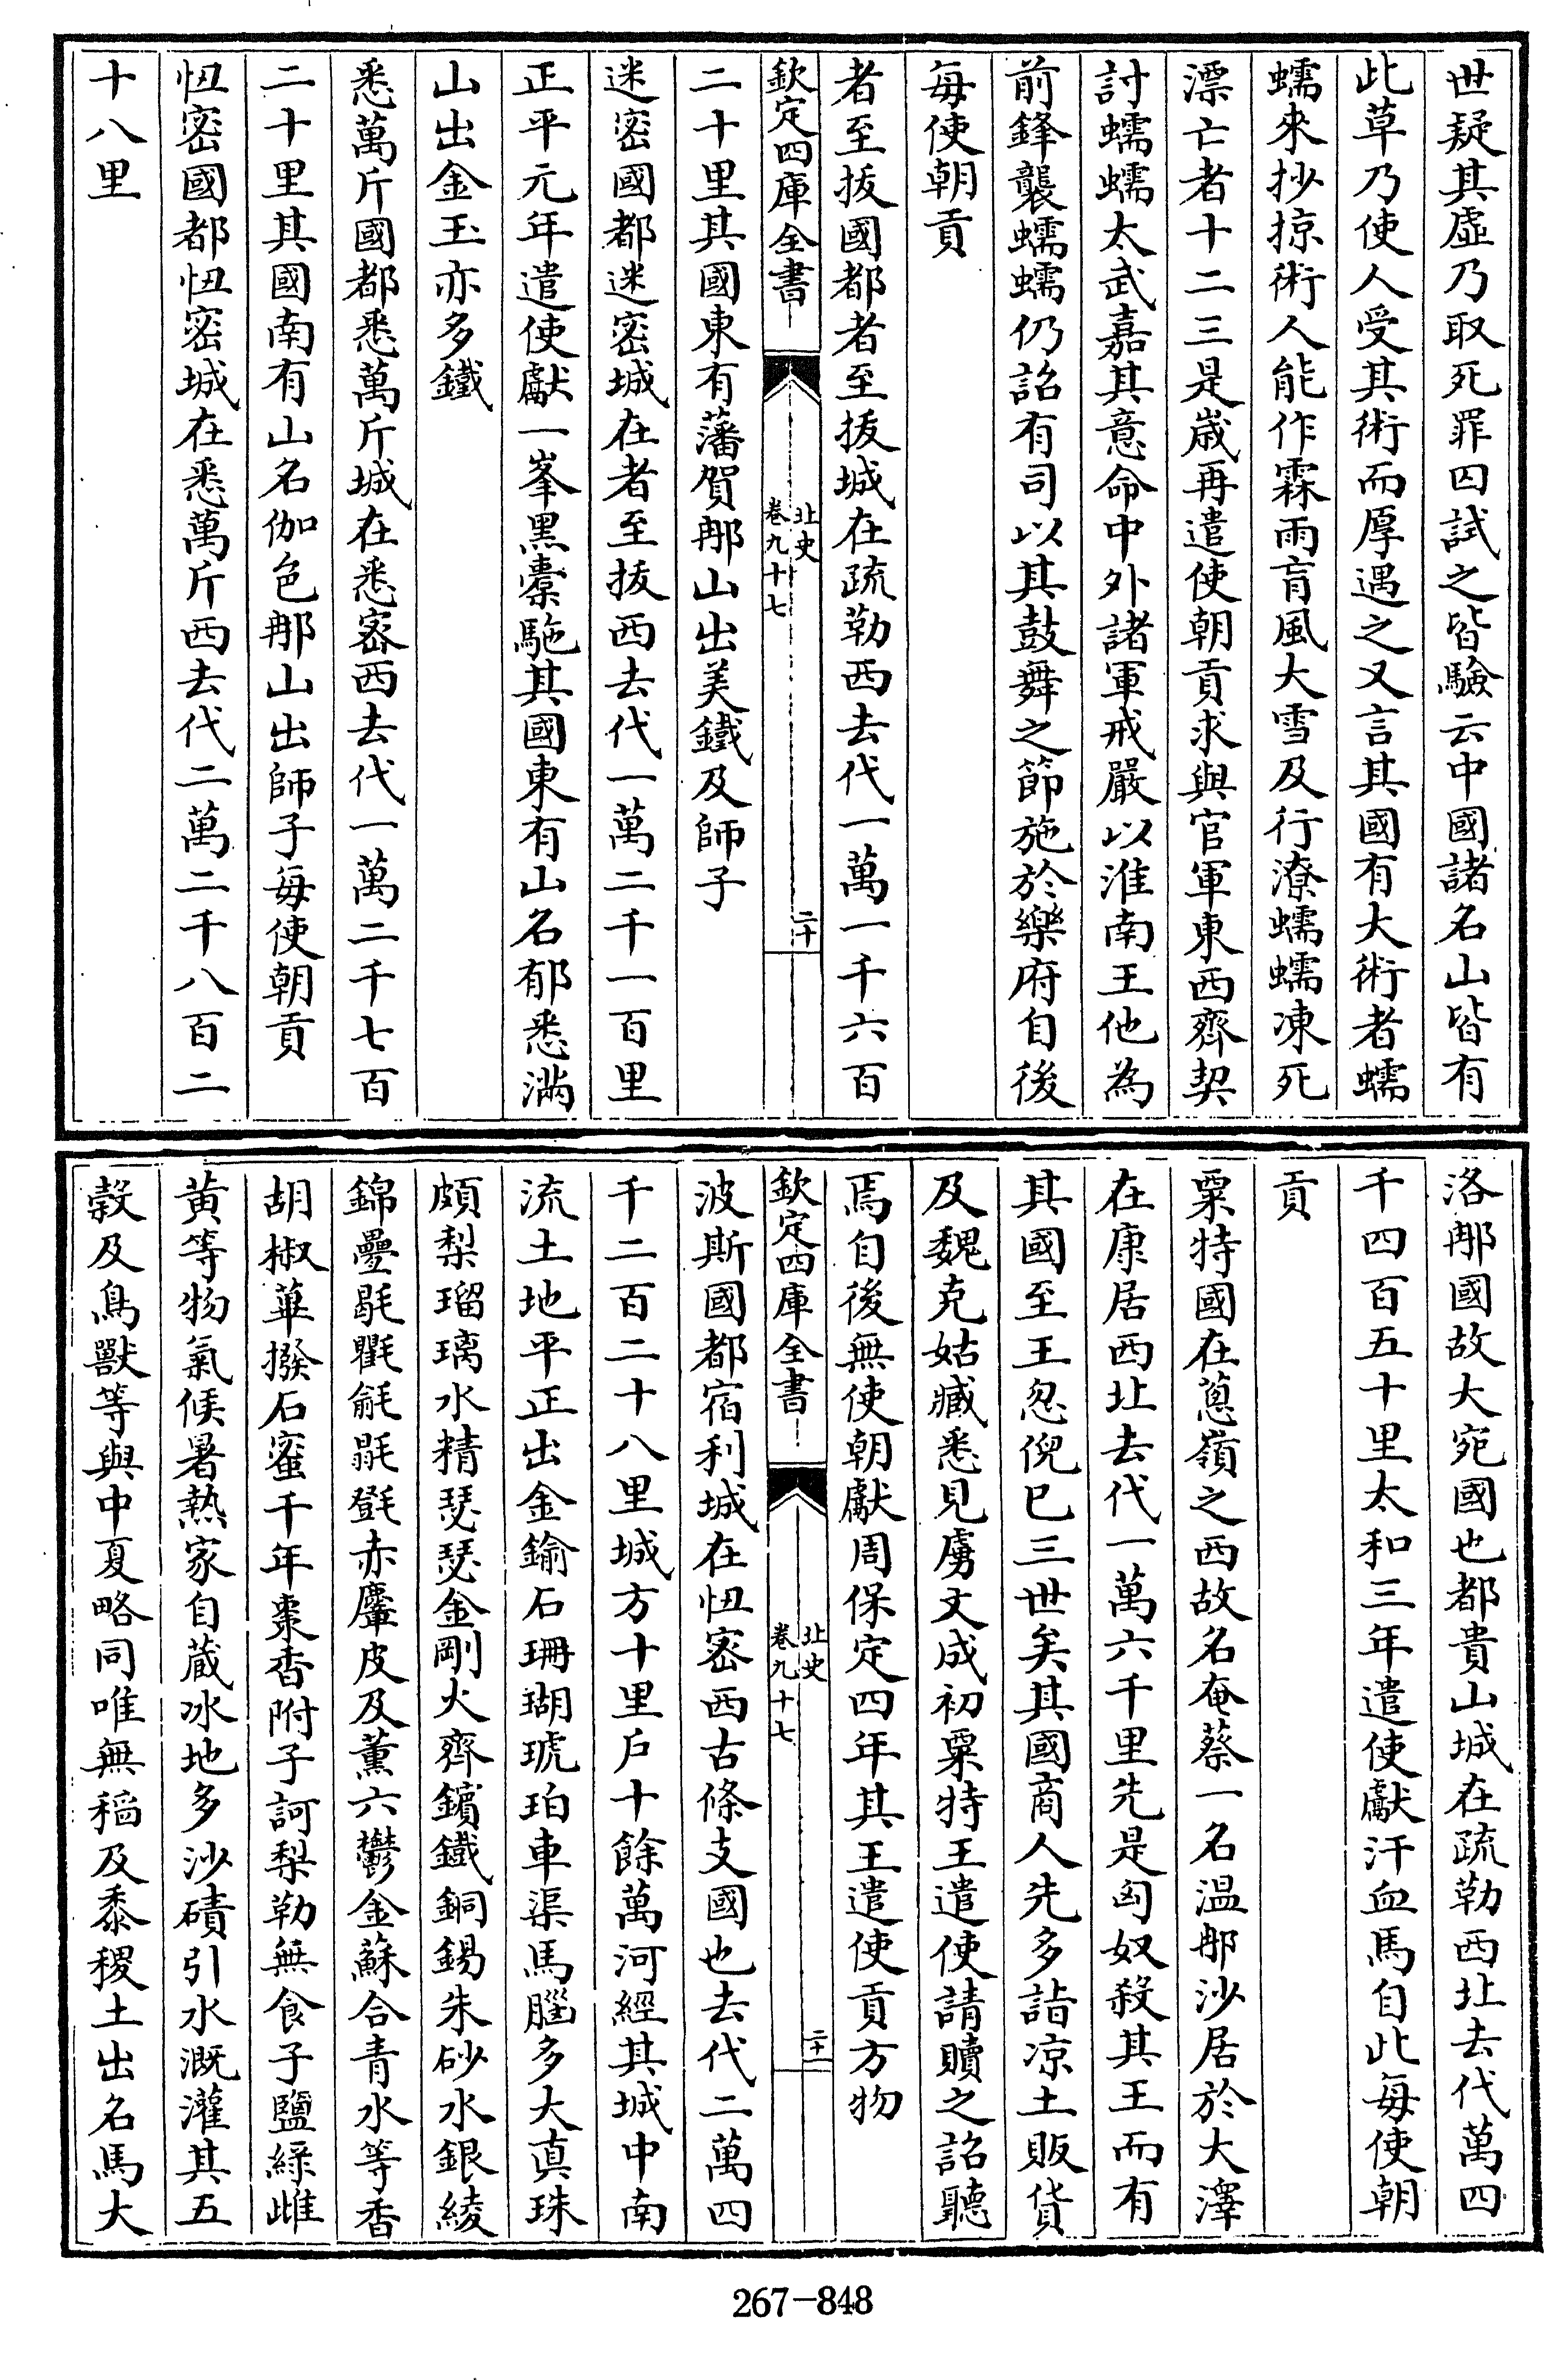 世疑其虛乃取死罪囚試之皆驗云中國諸名山皆有
此草乃使人受其術而厚遇之又言其國有大術者蠕
蠕來抄掠術人能作霖雨肓風大雪及行潦蠕蠕凍死
漂亡者十二三是歲再遣使朝貢求與官軍東西齊契
討蠕蠕太武嘉其意命中外諸軍戒嚴以淮南王他為
前鋒襲蠕蠕仍詔有司以其鼓舞之節施於樂府自後
每使朝貢
者至拔國都者至拔城在疏勒西去代一萬一千六百
欽定四庫全書
北史
卷九十七
二十
二十里其國東有藩賀那山出美鐵及師子
迷密國都迷密城在者至拔西去代一萬二千一百里
正平元年遣使獻一峯黑槖駞其國東有山名郁悉滿
山出金玉亦多鐵
悉萬斤國都悉萬斤城在悉密西去代一萬二千七百
二十里其國南有山名伽色那山出師子每使朝貢
忸密國都忸密城在悉萬斤西去代二萬二千八百二
十八里
洛那國故大宛國也都貴山城在疏勒西北去代萬四
千四百五十里太和三年遣使獻汗血馬自此每使朝
貢
粟特國在蔥嶺之西故名奄蔡一名温那沙居於大澤
在康居西北去代一萬六千里先是匈奴殺其王而有
其國至王忽倪已三世矣其國商人先多詣凉土販貨
及魏克姑臧悉見虜文成初粟特王遣使請贖之詔聽
焉自後無使朝獻周保定四年其王遣使貢方物
欽定四庫全書
北史
卷九十七
二十一
波斯國都宿利城在忸密西古條支國也去代二萬四
千二百二十八里城方十里戶十餘萬河經其城中南
流土地平正出金鍮石珊瑚琥珀車渠馬腦多大真珠
頗梨瑠璃水精瑟瑟金剛火齊鑌鐵銅錫朱砂水銀綾
錦疊㲪氍毹㲣㲪赤麞皮及薰六鬱金蘇合青水等香
胡椒蓽撥石蜜千年棗香附子訶梨勒無食子鹽緑雌
黄等物氣候暑熱家自藏冰地多沙磧引水溉灌其五
穀及鳥獸等與中夏略同唯無稻及黍稷土出名馬大
267-848